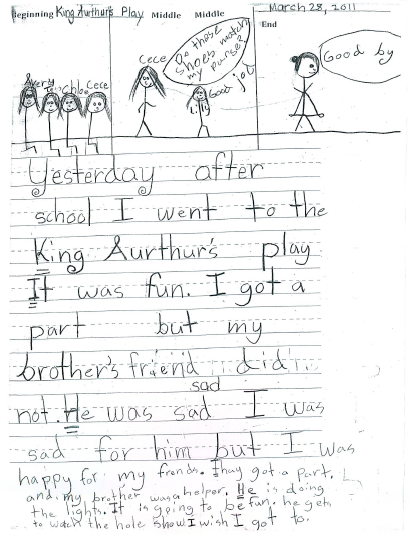 Beginning King Aurthur's Play Middle Middle March 28, 2011
End
Avery Chloe Cece
Cece
Do those shoes match my purse?
Good job
Good by
Yesterday after
school I went to the
King Aurthur's play
It was fun. I got a
part but my
brother's friend did
sad
not. He was sad I was
sad for him but I was
happy for my frends. Thay got a part.
and my brother was a helper. He is doing
the lights. It is going to be fun. he gets
to watch the hole show I wish I got to.